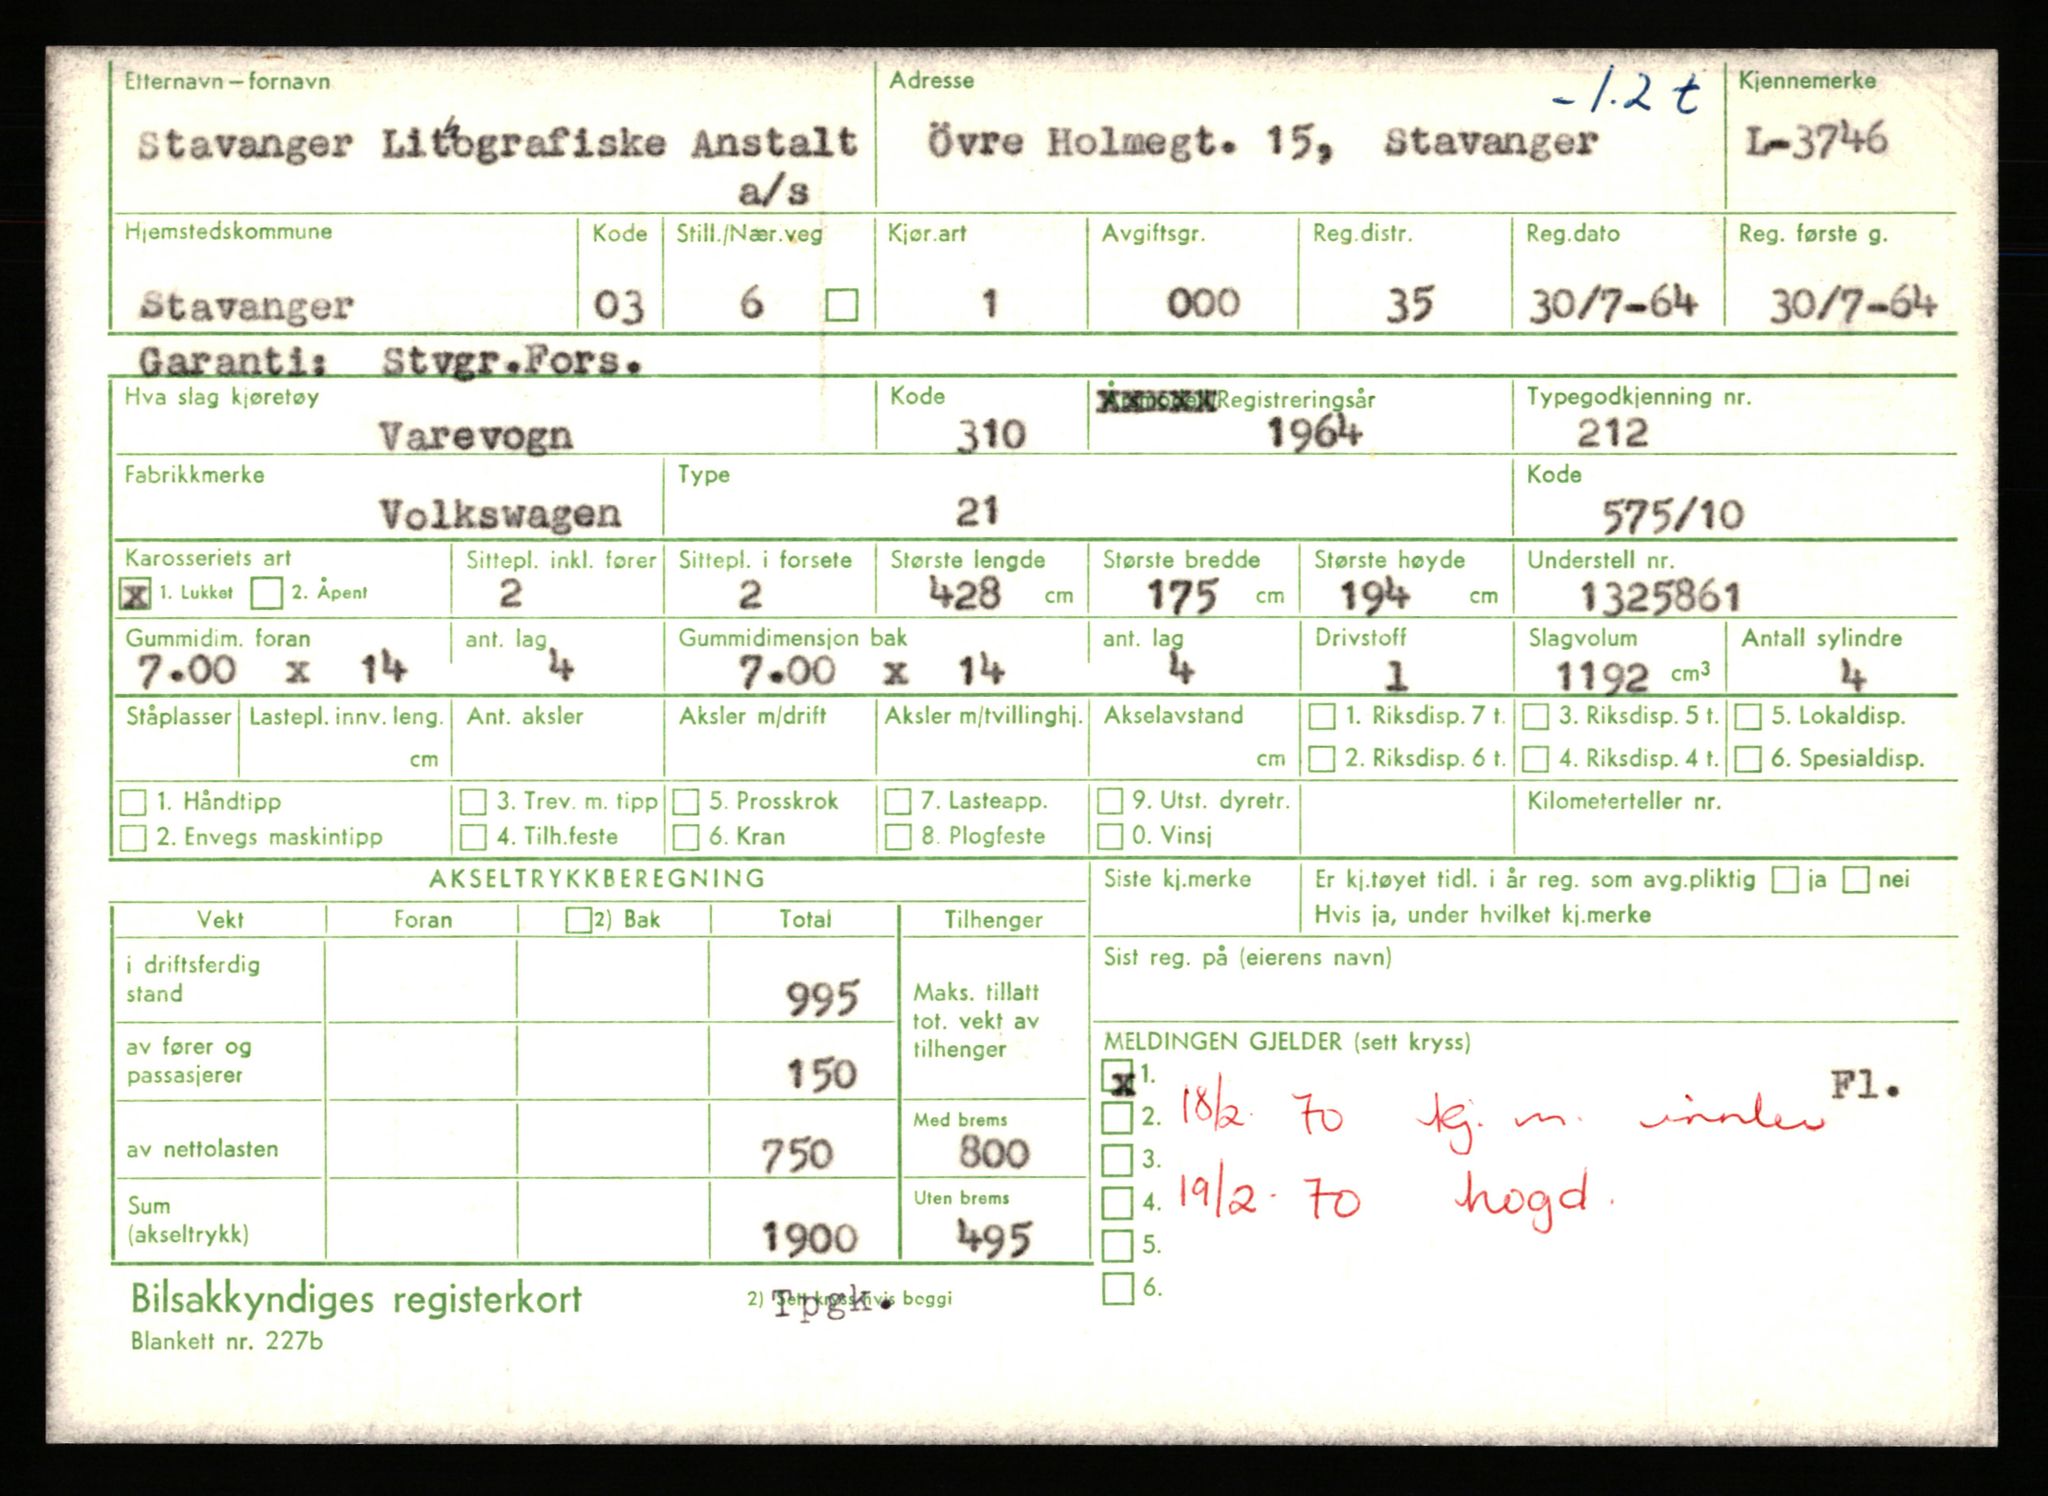 Etternavn – fornavn Adresse -1.2 t Kjennemerke
Stavanger Lithografiske Anstalt Övre Holmegt. 15, Stavanger L-3746
a/s
Hjemstedskommune Kode Still./Nær.veg Kjør.art Avgiftsgr. Reg.distr. Reg.dato Reg. første g.
Stavanger 03 6 1 000 35 30/7-64 30/7-64
Garanti: Stvgr.Fors.
Hva slag kjøretøy Kode Årsmodell/Registreringsår Typegodkjenning nr.
Varevogn 310 1964 212
Fabrikkmerke Type Kode
Volkswagen 21 575/10
Karosseriets art Sittepl. inkl. fører Sittepl. i forsete Største lengde Største bredde Største høyde Understell nr.
x 1. Lukket 2. Åpent 2 2 428 cm 175 cm 194 cm 1325861
Gummidim. foran ant. lag Gummidimensjon bak ant. lag Drivstoff Slagvolum Antall sylindre
7.00 x 14 4 7.00 x 14 4 1 1192 cm³ 4
Ståplasser Lastepl. innv. leng. Ant. aksler Aksler m/drift Aksler m/tvillinghj. Akselavstand 1. Riksdisp. 7 t. 3. Riksdisp. 5 t. 5. Lokaldisp.
cm cm 2. Riksdisp. 6 t. 4. Riksdisp. 4 t. 6. Spesialdisp.
1. Håndtipp 3. Trev. m. tipp 5. Prosskrok 7. Lasteapp. 9. Utst. dyretr. Kilometerteller nr.
2. Envegs maskintipp 4. Tilh.feste 6. Kran 8. Plogfeste 0. Vinsj
AKSELTRYKKBEREGNING Siste kj.merke Er kj.tøyet tidl. i år reg. som avg.pliktig ja nei
Hvis ja, under hvilket kj.merke
Vekt Foran 2) Bak Total Tilhenger
Sist reg. på (eierens navn)
i driftsferdig
stand 995 Maks. tillatt
tot. vekt av
tilhenger
MELDINGEN GJELDER (sett kryss)
av fører og
passasjerer 150
x 1. Fl.
2. 18/2. 70 kj. m. innlev
av nettolasten 750 Med brems
800
3.
4. 19/2. 70 hogd.
Sum
(akseltrykk) 1900 Uten brems
495
5.
6.
Bilsakkyndiges registerkort 2) Sett kryss hvis boggi
Tpgk.
Blankett nr. 227b